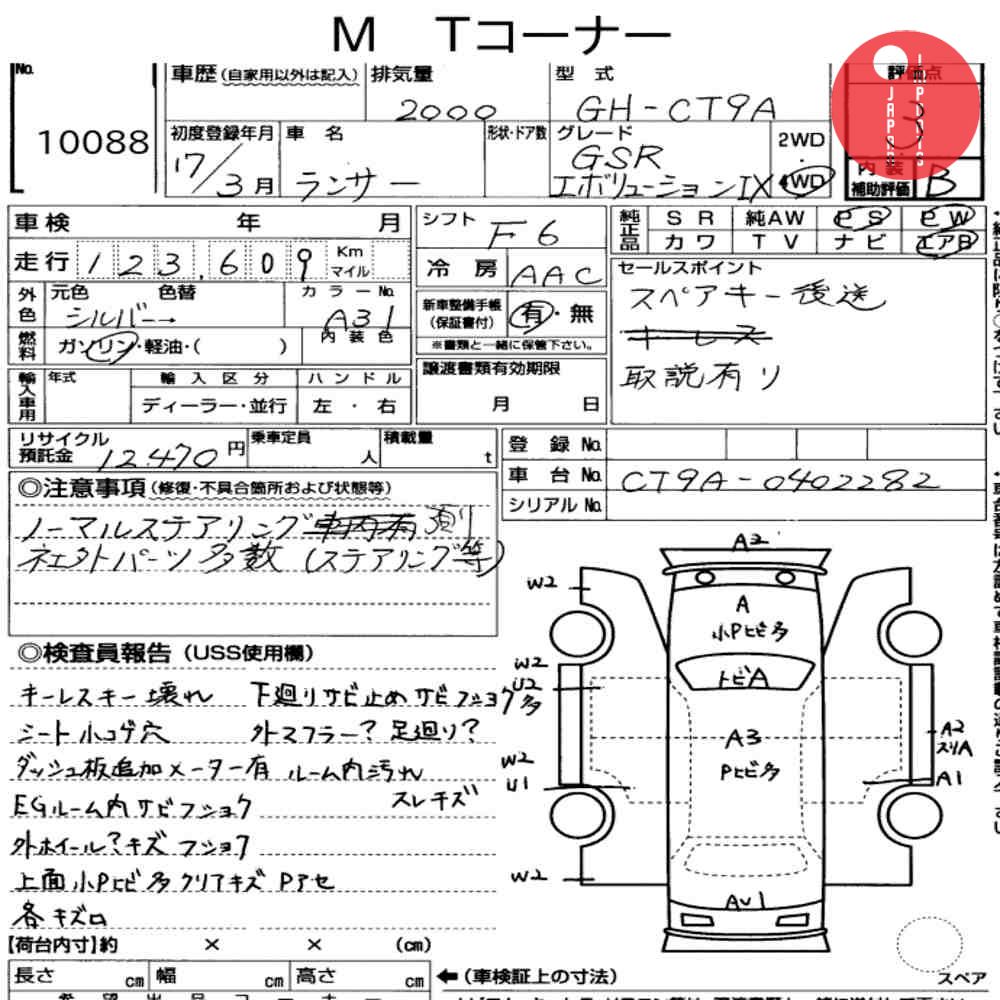 M Tコーナー
No. 10088
車歴 (自家用以外は記入)
排気量 2000
型式 GH-CT9A
評価点 3
JAPAN
初度登録年月 17/3月
車名 ランサー
形状・ドア数
グレード GSR
エボリューションIX
2WD
・
4WD
内装
補助評価 B
車検 年 月
走行 123,609 Km マイル
外色 元色 色替 カラーNo.
シルバー→ A31
燃料 ガソリン・軽油・( ) 内装色
輸入車用 年式 輸入区分 ハンドル
ディーラー・並行 左・右
シフト F6
冷房 AAC
新車整備手帳
(保証書付) 有・無
※書類と一緒に保管下さい。
譲渡書類有効期限
月 日
純正品 SR 純AW PS PW
カワ TV ナビ エアB
セールスポイント
スペアキー後送
キーレス
取説有り
リサイクル
預託金 12,470円
乗車定員 人
積載量 t
登録No.
車台No. CT9A-0402282
シリアルNo.
◎注意事項 (修復・不具合箇所および状態等)
ノーマルステアリング車内有
社外パーツ多数 (ステアリング等)
◎検査員報告 (USS使用欄)
キーレスキー壊れ 下廻りサビ止め サビフショク多
シート小コゲ穴 外マフラー? 足廻り?
ダッシュ板追加メーター有 ルーム内汚れ
スレキズ
EGルーム内サビフショク
外ホイール?キズ フショク
上面小Pヒビ多 クリアキズ Pアセ
各キズロ
A2
W2
A
小Pヒビ多
W2
U2
トビA
A3
Pヒビ多
A2
スリA
W2
U1
A1
W2
AU1
【荷台内寸】約 × × (cm)
長さ cm 幅 cm 高さ cm
←(車検証上の寸法)
スペア